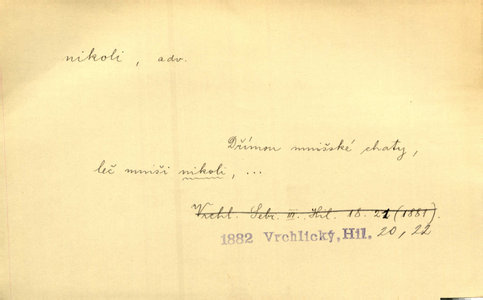 nikoli, adv.
Dřímou mnišské chaty,
leč mniši nikoli, ...
Vrchl. Sebr. III. Hil. 18.21 (1881).
1882 Vrchlický, Hil. 20, 22